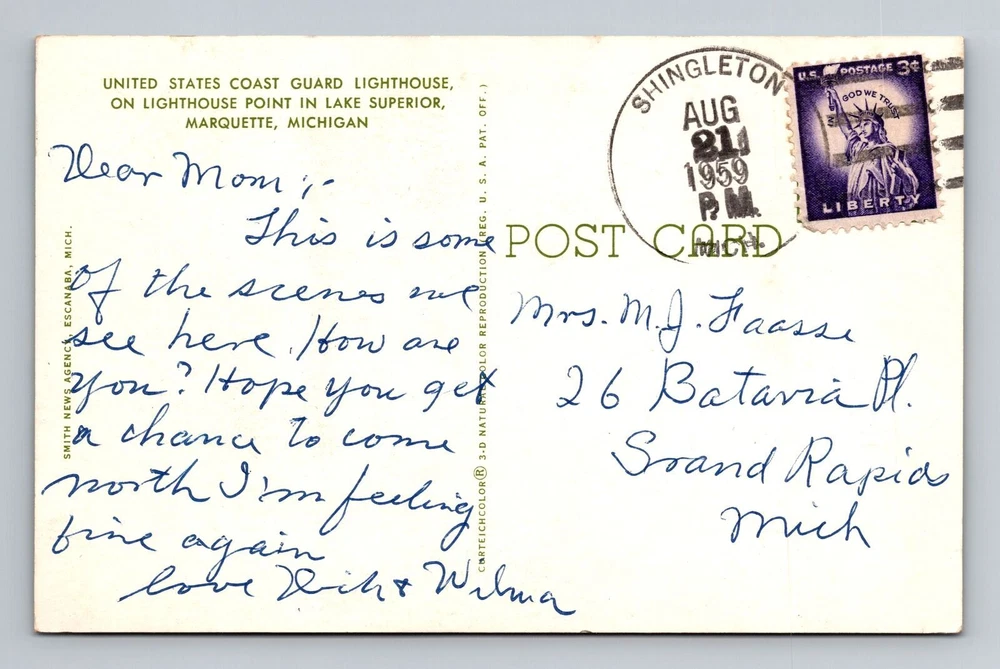 UNITED STATES COAST GUARD LIGHTHOUSE,
ON LIGHTHOUSE POINT IN LAKE SUPERIOR,
MARQUETTE, MICHIGAN
Dear Mom ;-
This is some
of the scenes we
see here. How are
you? Hope you get
a chance to come
north I'm feeling
fine again
love Dick & Wilma
SMITH NEWS AGENCY, ESCANABA, MICH.
CURTEICHCOLOR® 3-D NATURAL COLOR REPRODUCTION (REG. U. S. A. PAT. OFF.)
POST CARD
SHINGLETON
AUG
21
1959
P.M.
MICH.
U.S. POSTAGE 3¢
IN GOD WE TRUST
LIBERTY
Mrs. M.J. Faasse
26 Batavia Pl.
Grand Rapids
Mich